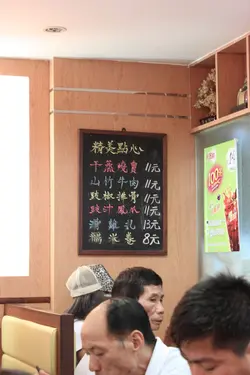 精美點心
干蒸燒賣 11元
山竹牛肉 11元
豉椒排骨 11元
豉汁鳳爪 11元
滑雞札 13元
糯米卷 8元
100%